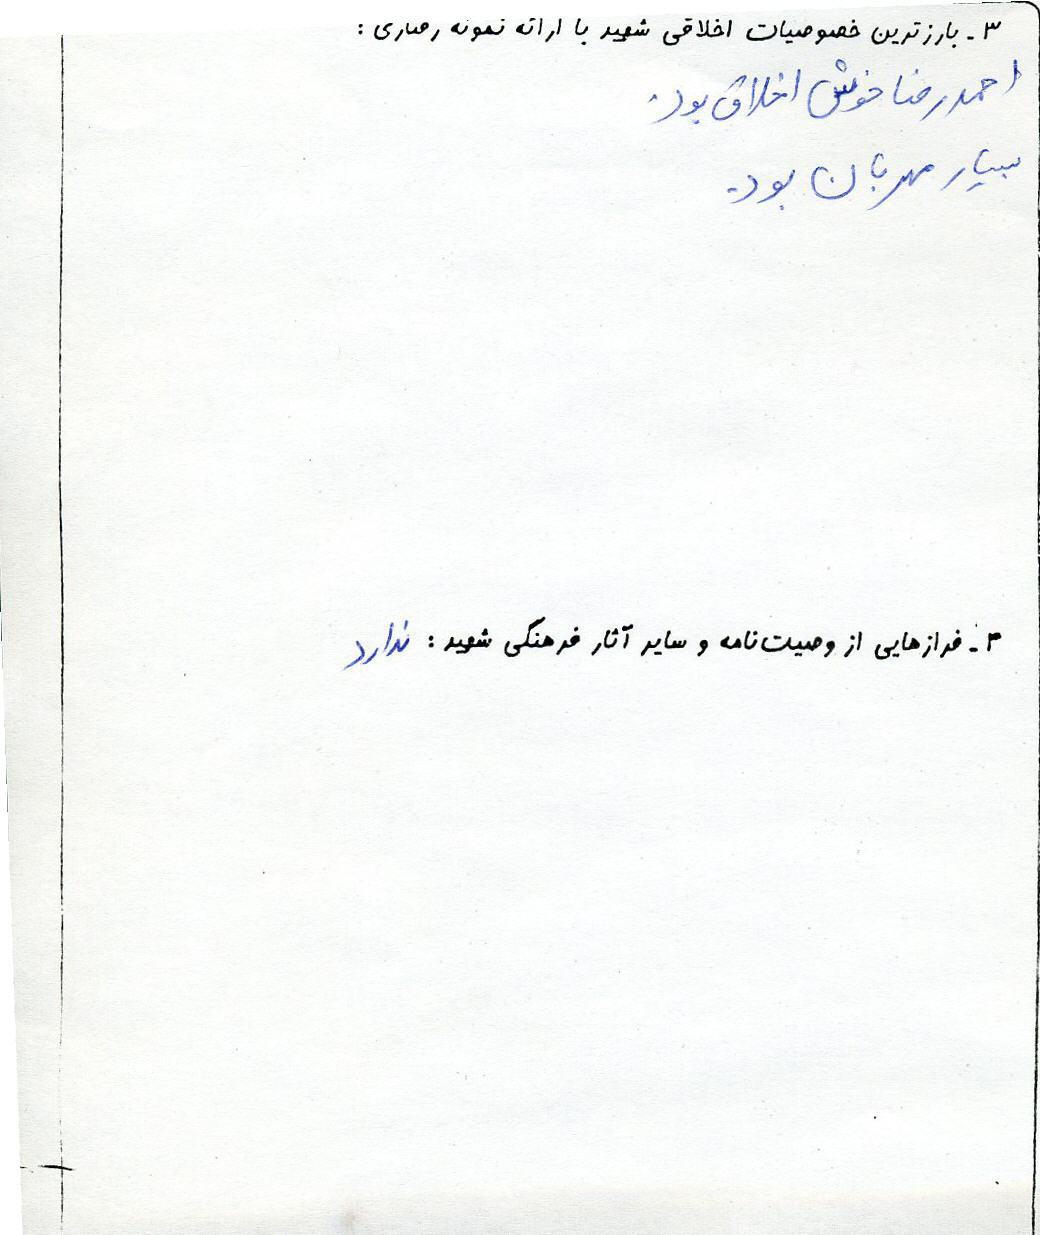 ۳ـ بارزترین خصوصیات اخلاقی شهید با ارائه نمونه رفتاری :
احمدرضا خوش اخلاق بود.
بسیار مهربان بود.
۴ـ فرازهایی از وصیت‌نامه و سایر آثار فرهنگی شهید : ندارد